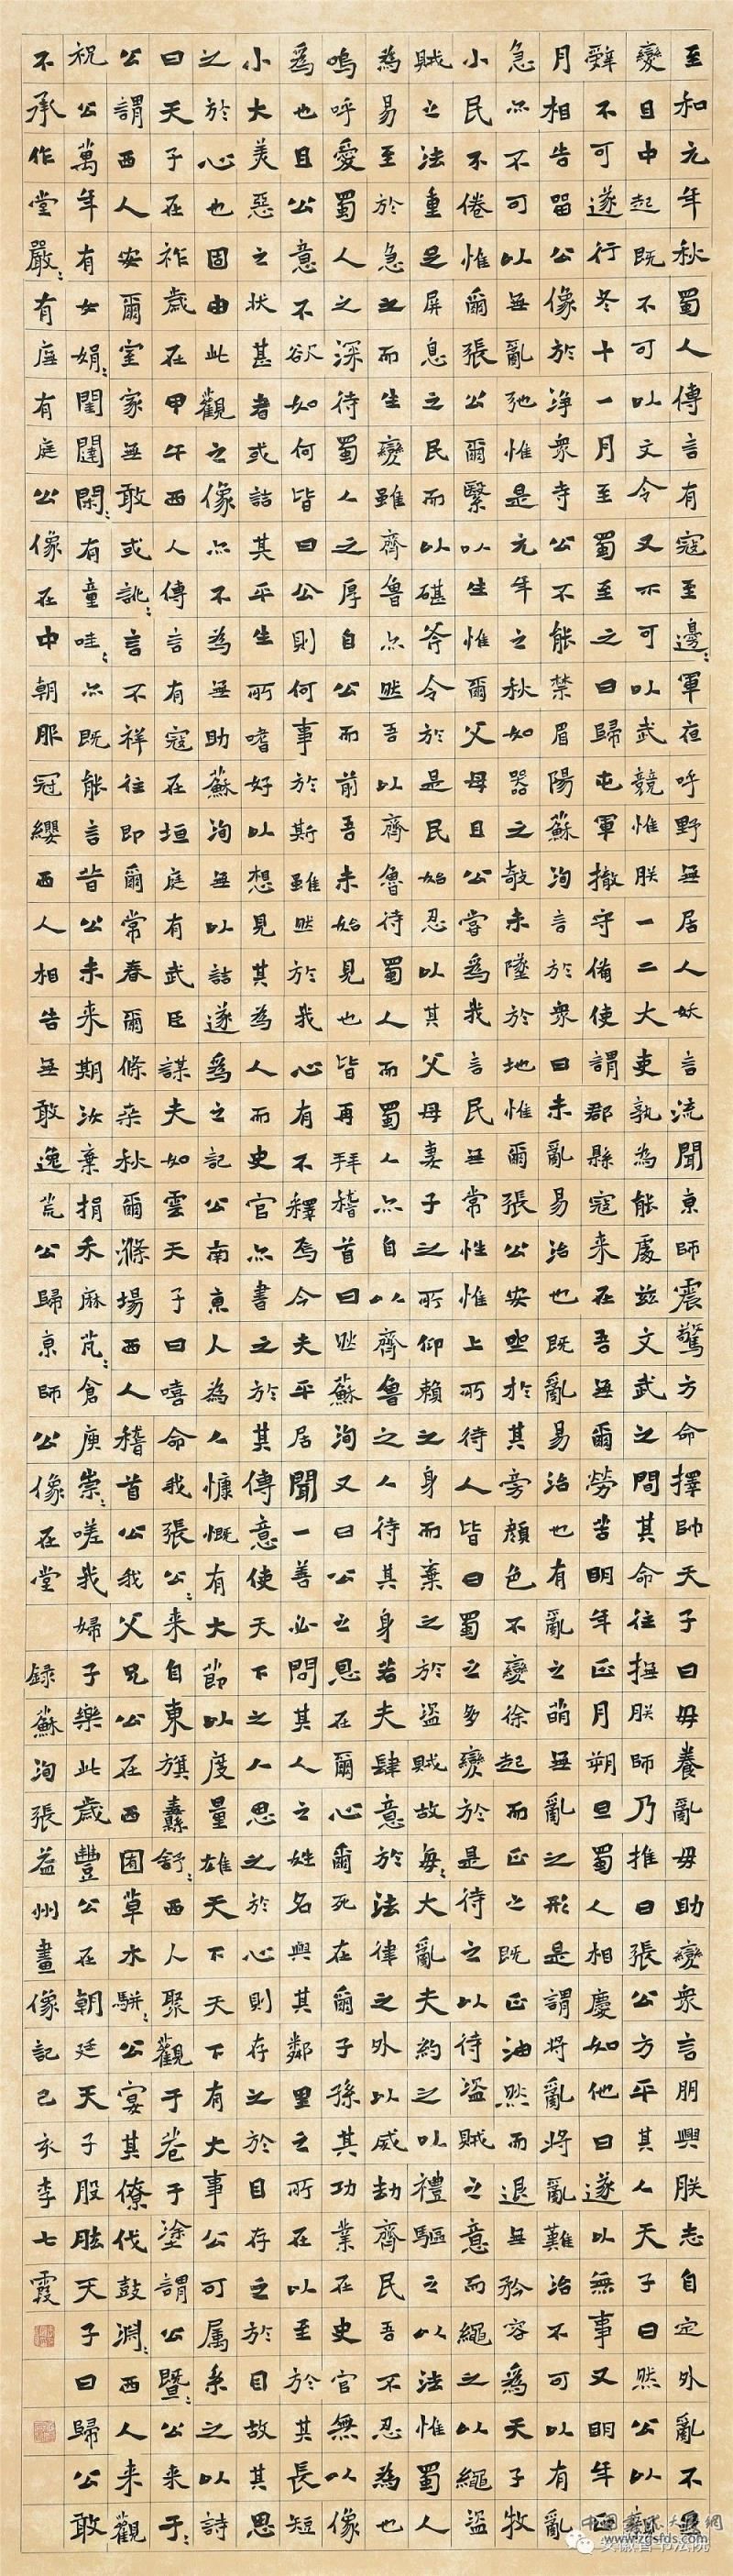 至和元年秋蜀人傳言有寇至邊〻軍夜呼野無居人妖言流聞京師震驚方命擇帥天子曰毋養亂毋助變衆言朋興朕志自定外亂不
變且中起既不可以文令又不可以武競惟朕一二大吏孰為能處茲文武之間其命往撫朕師乃推曰張公方平其人天子曰然公以親
辭不可遂行冬十一月至蜀至之日歸屯軍撤守備使謂郡縣寇來在吾無爾勞苦明年正月朔旦蜀人相慶如他日遂以無事又明年正
月相告留公像於淨衆寺公不能禁眉陽蘇洵言於衆曰未亂易治也既亂易治也有亂之萌無亂之形是謂將亂將亂難治不可以有亂
急亦不可以無亂弛惟是元年之秋如器之敧未墜於地惟爾張公安坐於其旁顏色不變徐起而正之既正油然而退無矜容爲天子牧
小民不倦惟爾張公爾繄以生惟爾父母且公嘗爲我言民無常性惟上所待人皆曰蜀之多變於是待之以待盜賊之意而繩之以繩盜
賊之法重足屏息之民而以碪斧令於是民始忍以其父母妻子之所仰賴之身而棄之於盜賊故每〻大亂夫約之以禮驅之以法惟蜀人
為易至於急之而生變雖齊魯亦然吾以齊魯待蜀人而蜀人亦自以齊魯之人待其身若夫肆意於法律之外以威劫齊民吾不忍為也
嗚呼愛蜀人之深待蜀人之厚自公而前吾未始見也皆再拜稽首曰然蘇洵又曰公之恩在爾心爾死在爾子孫其功業在史官無以像
爲也且公意不欲如何皆曰公則何事於斯雖然於我心有不釋焉今夫平居聞一善必問其人之姓名與其鄰里之所在以至於其長短
小大美惡之狀甚者或詰其平生所嗜好以想見其為人而史官亦書之於其傳意使天下之人思之於心則存之於目存之於目故其思
之於心也固由此觀之像亦不為無助蘇洵無以詰遂爲之記公南京人為人慷慨有大節以度量雄天下天下有大事公可属系之以詩
曰天子在祚歲在甲午西人傳言有寇在垣庭有武臣謀夫如雲天子曰嘻命我張公〻來自東旗纛舒〻西人聚觀于巷于塗謂公暨〻公來于〻
公謂西人安爾室家無敢或訛〻言不祥往即爾常春爾條桑秋爾滌場西人稽首公我父兄公在西囿草木駢〻公宴其僚伐鼓淵〻西人來觀
祝公萬年有女娟〻閨闥閑〻有童哇〻亦既能言昔公未來期汝棄捐禾麻芃〻倉庾崇〻嗟我婦子樂此歲豐公在朝廷天子股肱天子曰歸公敢
不承作堂嚴〻有廡有庭公像在中朝服冠纓西人相告無敢逸荒公歸京師公像在堂 録蘇洵張益州畫像記己亥李七霞
www.zgsfds.com
安徽省书法院